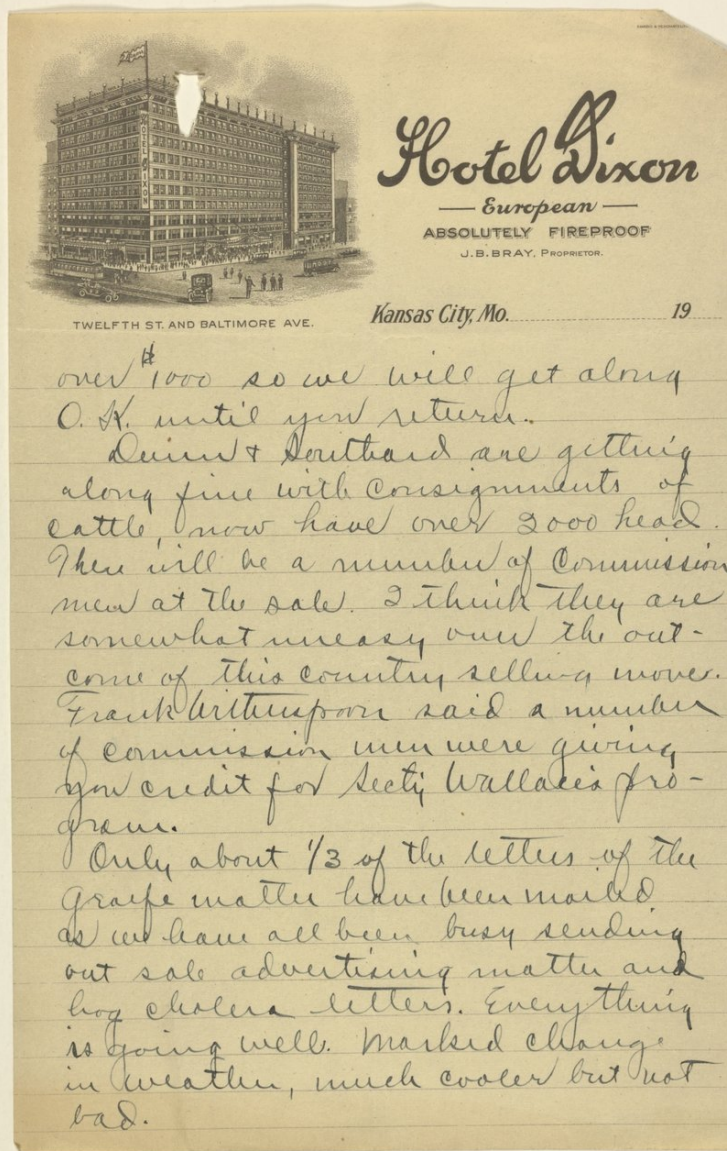 HOTEL DIXON
Hotel Dixon
European
ABSOLUTELY FIREPROOF
J.B. BRAY, PROPRIETOR.
TWELFTH ST. AND BALTIMORE AVE.
Kansas City, Mo. 19
over $1000 so we will get along
O.K. until you return.
Quinn & Southard are getting
along fine with consignments of
cattle, now have over 2000 head.
There will be a number of Commission
men at the sale. I think they are
somewhat uneasy over the out-
come of this country selling move.
Frank Witherspoon said a number
of commission men were giving
you credit for Secty Wallace's pro-
gram.
Only about 1/3 of the letters of the
Graife matter have been mailed
as we have all been busy sending
out sale advertising matter and
hog cholera letters. Everything
is going well. Marked change
in weather, much cooler but not
bad.